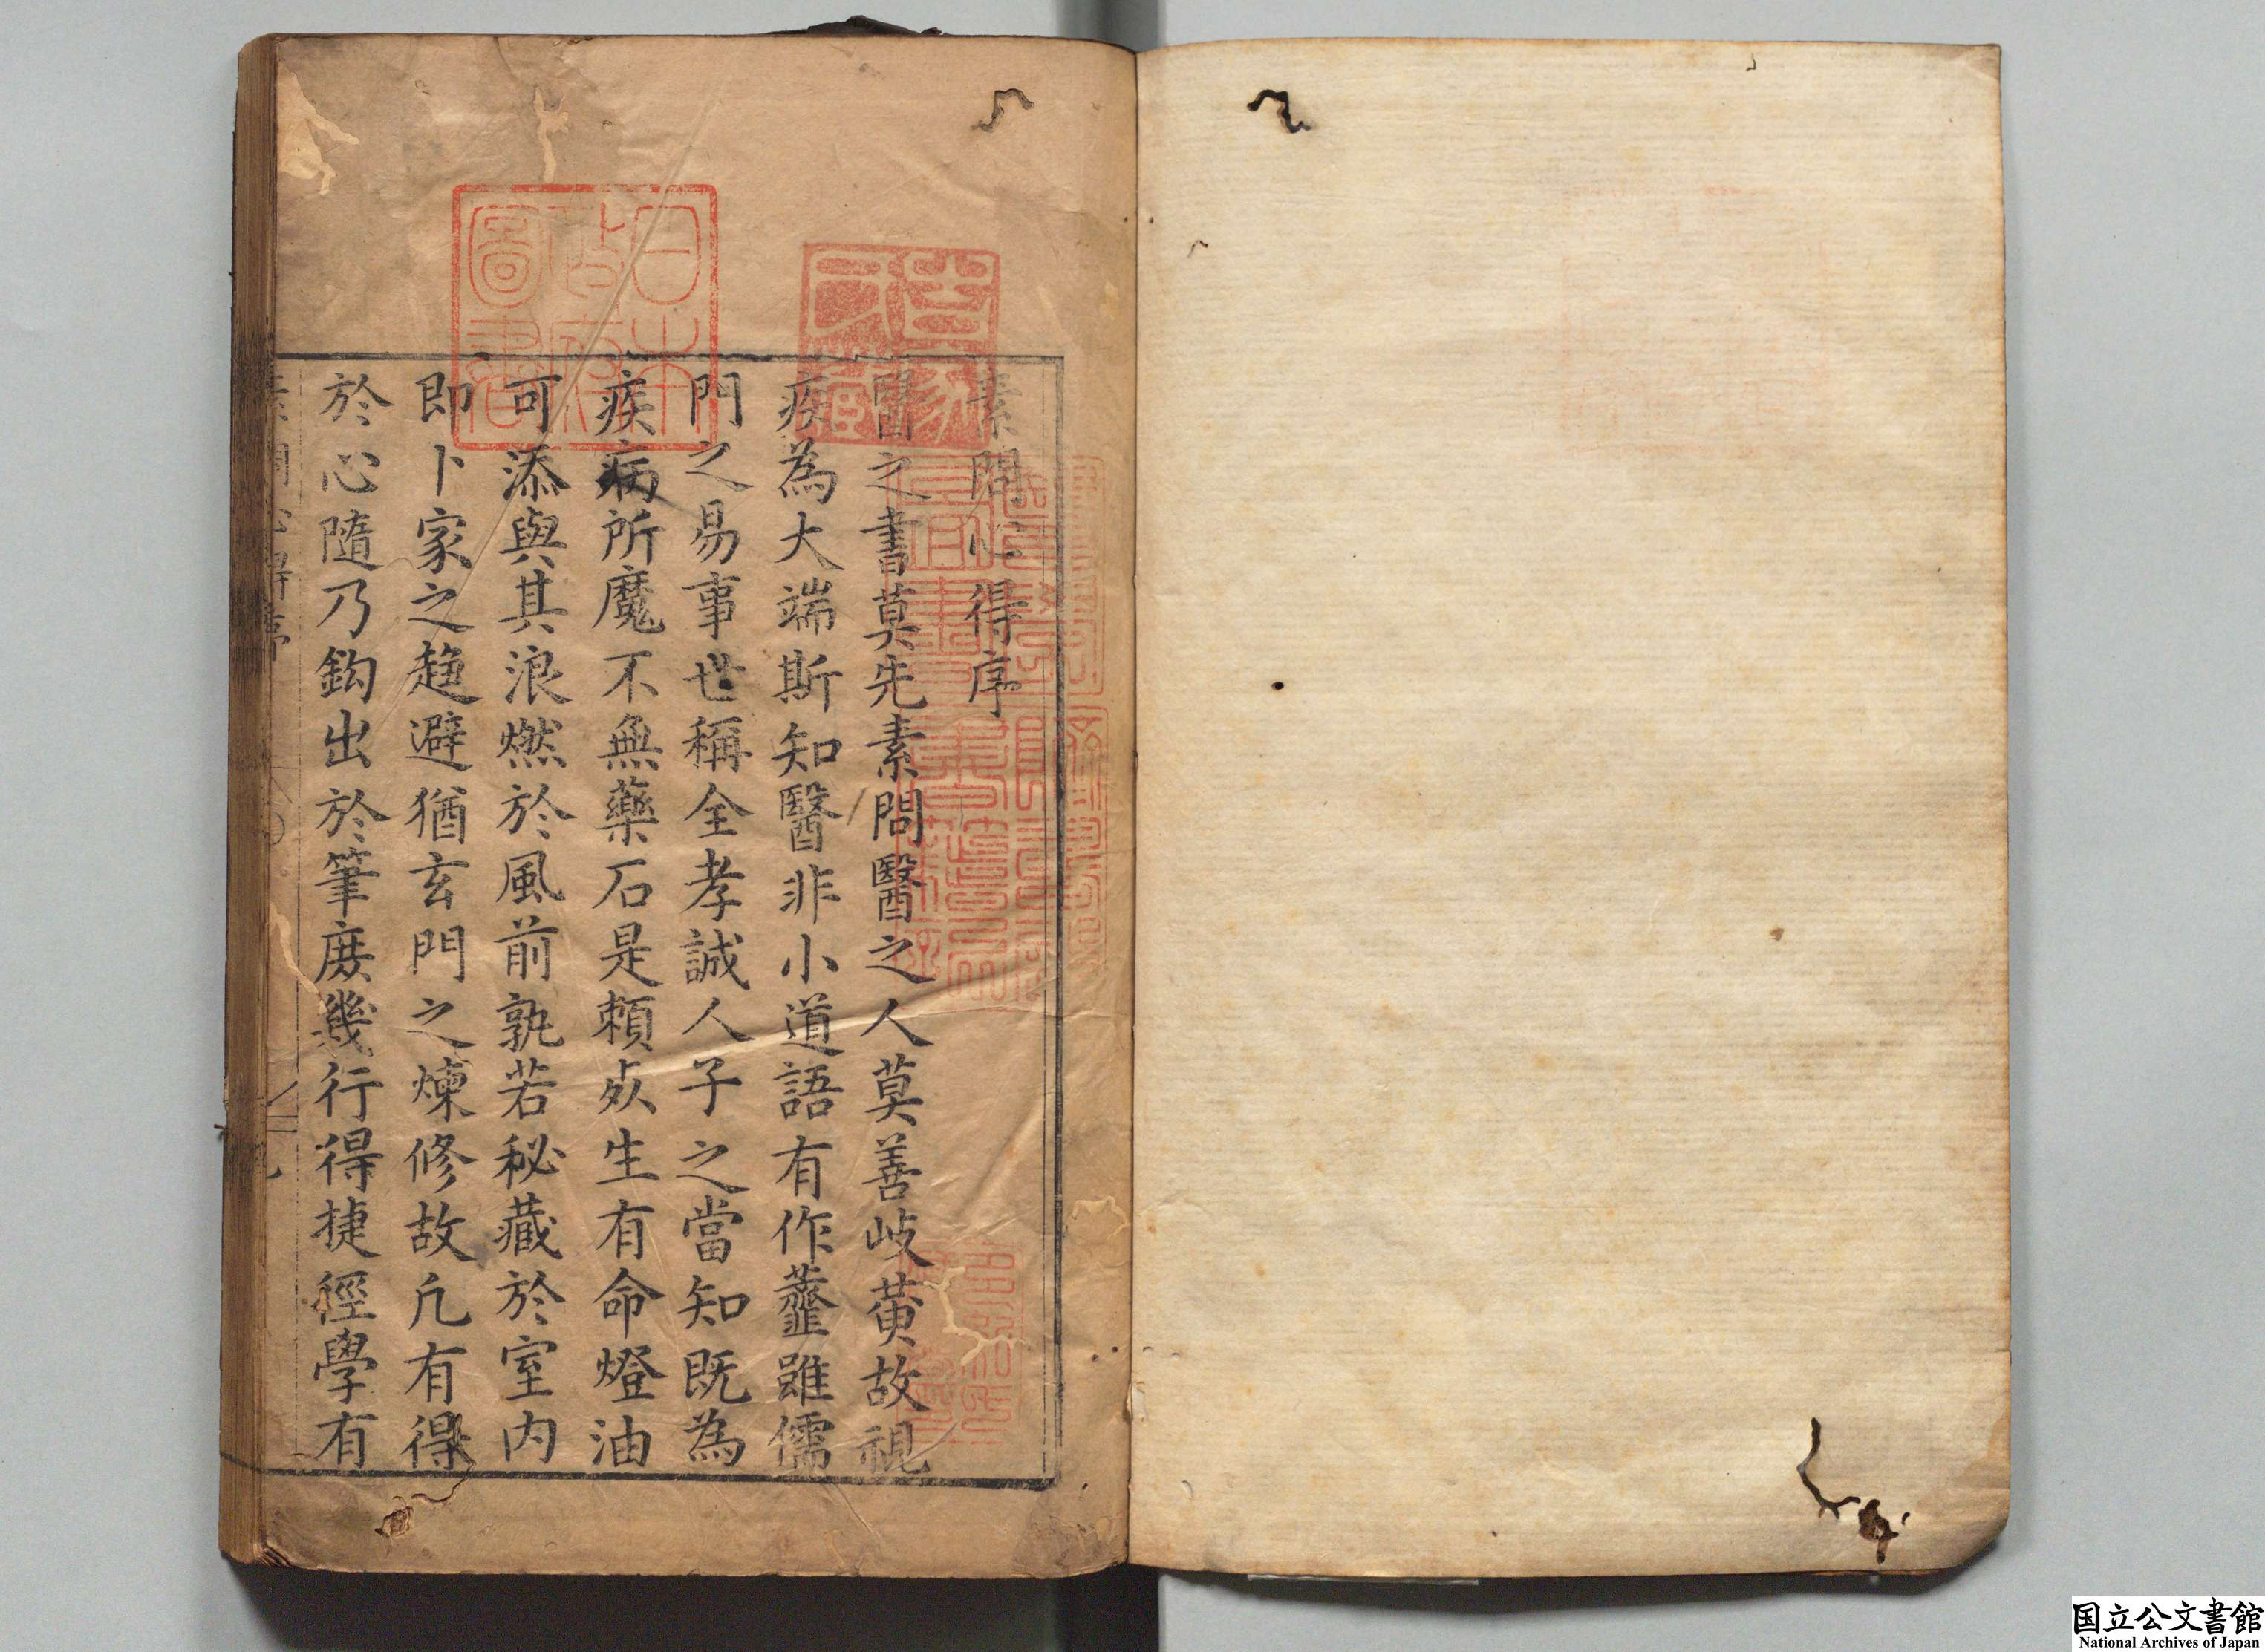 素問心得序
醫之書莫先素問醫之人莫善岐黄故視
疾為大端斯知醫非小道語有作虀雖儒
門之易事世稱全孝誠人子之當知既為
疾病所魔不無藥石是頼㱕生有命燈油
可添與其浪燃於風前孰若秘藏於室内
即卜家之趋避猶玄門之煉修故凢有得
於心隨乃鈎出於筆庻幾行得捷徑學有
日本政府圖書
国立公文書館
National Archives of Japan